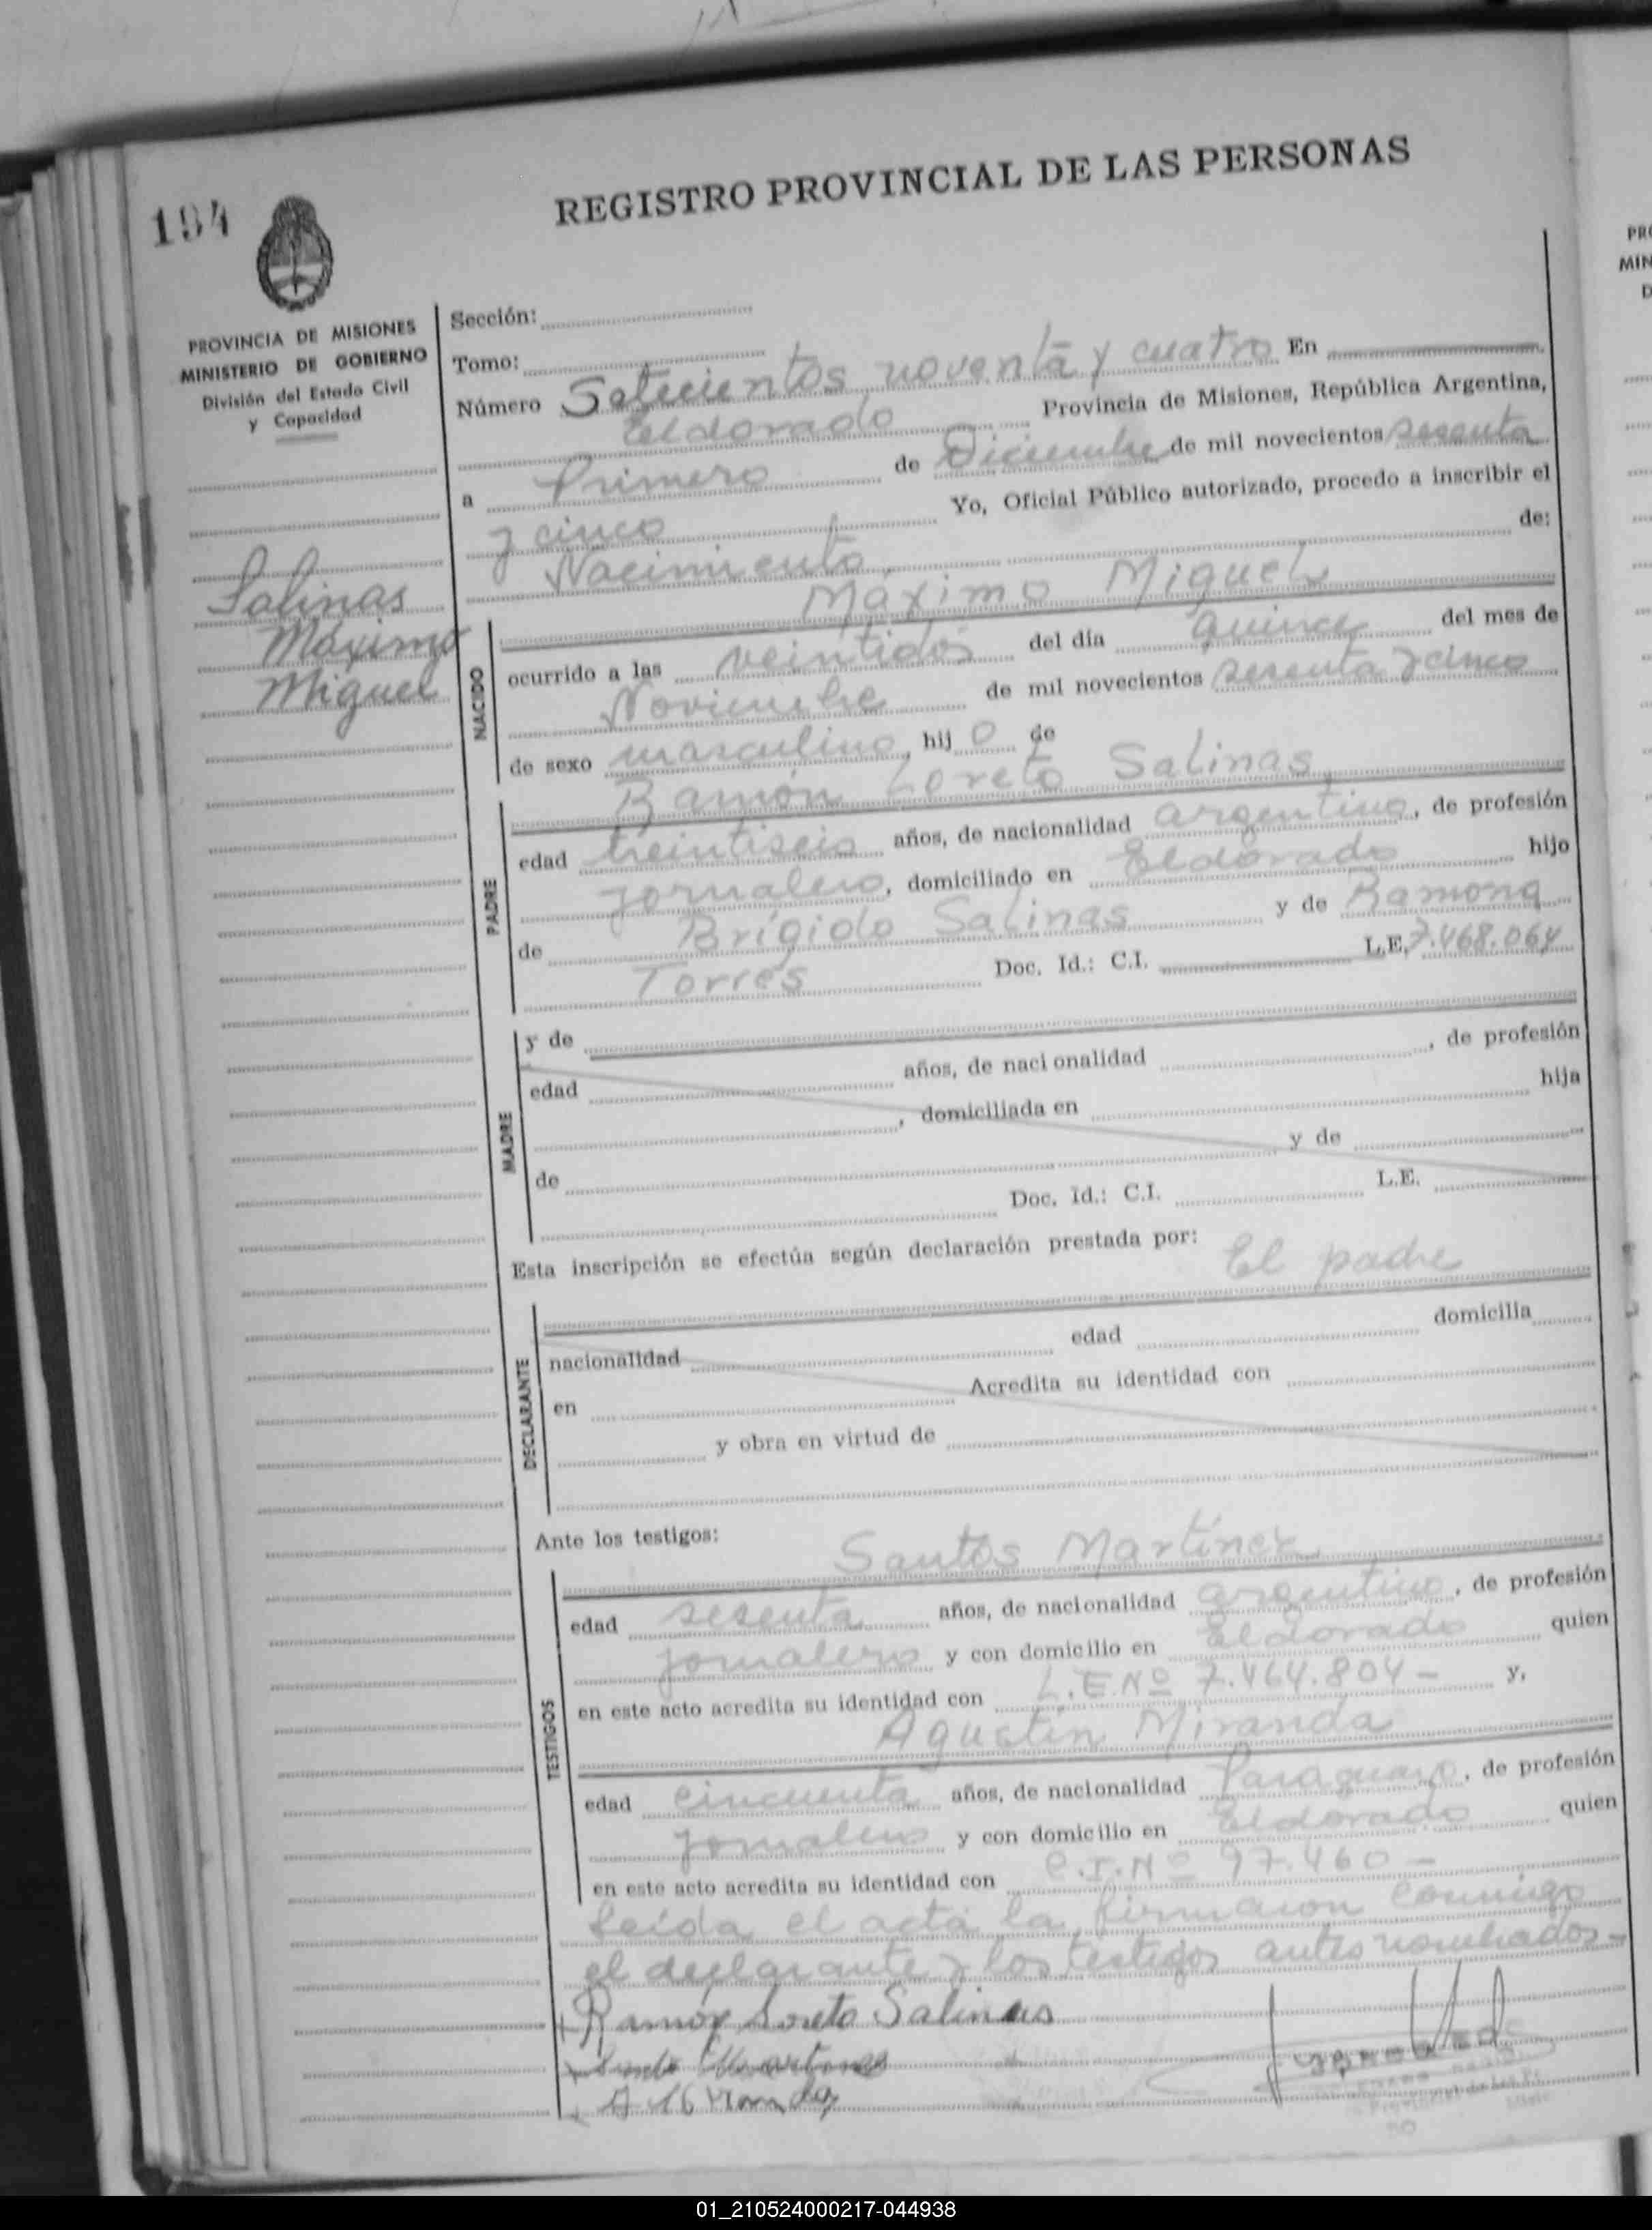 194
REGISTRO PROVINCIAL DE LAS PERSONAS
PROVINCIA DE MISIONES
MINISTERIO DE GOBIERNO
División del Estado Civil
y Capacidad
Salinas
Máximo
Miguel
Sección:
Tomo:
Número Setecientos noventa y cuatro En
Eldorado Provincia de Misiones, República Argentina,
a Primero de Diciembre de mil novecientos sesenta
y cinco Yo, Oficial Público autorizado, procedo a inscribir el
Nacimiento de:
NACIDO
Máximo Miguel
ocurrido a las veintidós del día quince del mes de
Noviembre de mil novecientos sesenta y cinco
de sexo masculino, hij o de
PADRE
Ramón Loreto Salinas
edad treintiseis años, de nacionalidad argentino, de profesión
jornalero, domiciliado en Eldorado hijo
de Brígido Salinas y de Ramona
Torres Doc. Id.: C.I. L.E. 7.468.064
MADRE
y de
edad años, de nacionalidad , de profesión
, domiciliada en hija
de y de
Doc. Id.: C.I. L.E.
Esta inscripción se efectúa según declaración prestada por: El padre
DECLARANTE
nacionalidad edad domicilia
en Acredita su identidad con
y obra en virtud de
Ante los testigos:
TESTIGOS
Santos Martínez
edad sesenta años, de nacionalidad argentino, de profesión
jornalero y con domicilio en Eldorado quien
en este acto acredita su identidad con L.E.Nº 7.464.804- y,
Agustín Miranda
edad cincuenta años, de nacionalidad Paraguayo, de profesión
jornalero y con domicilio en Eldorado quien
en este acto acredita su identidad con C.I.Nº 97.460-
Leída el acta la firmaron conmigo
el declarante y los testigos antes nombrados-
Ramón Loreto Salinas
01_210524000217-044938